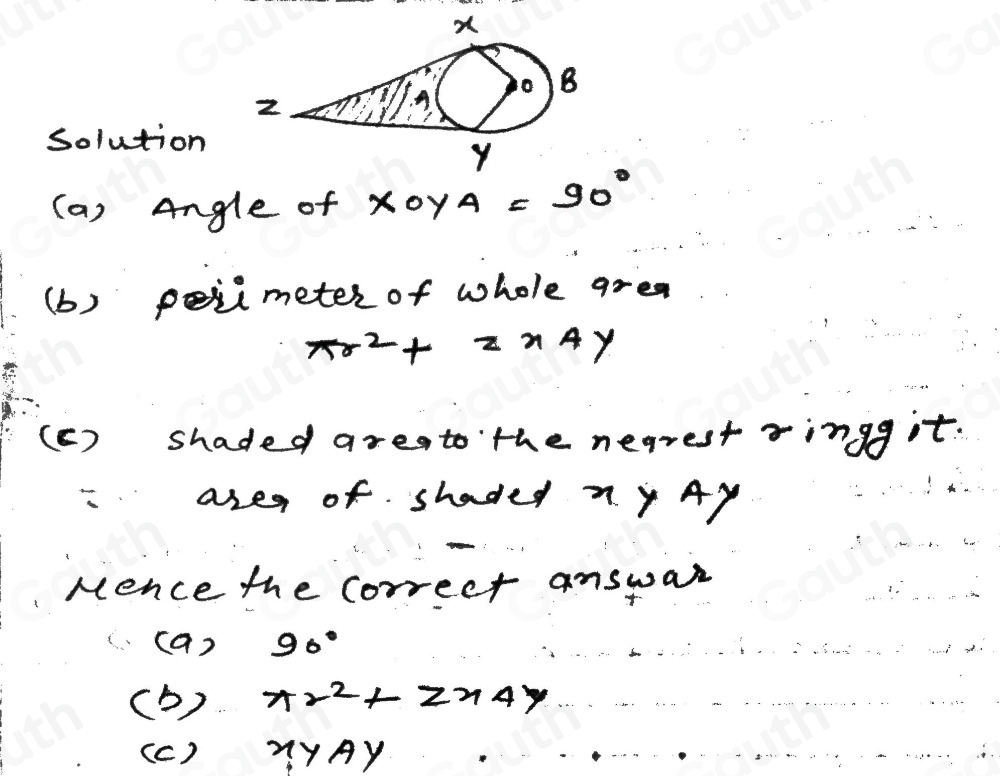 x
A
O
B
Z
Y
Solution
(a) Angle of XOYA = 90°
(b) perimeter of whole area
πr² + z x A y
(c) shaded area to the nearest ringgit.
area of shaded x y A y
Hence the correct answar
(a) 90°
(b) πr² + Z x A y
(c) x y A y